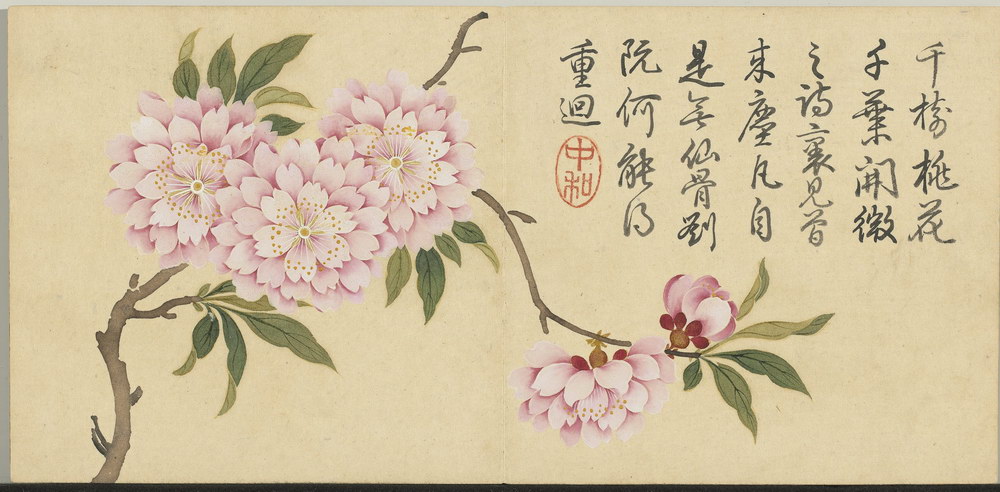 千樹桃花
千葉開微
之詩裏見曽
来塵凡自
是無仙骨劉
阮何能得
重迴
中和